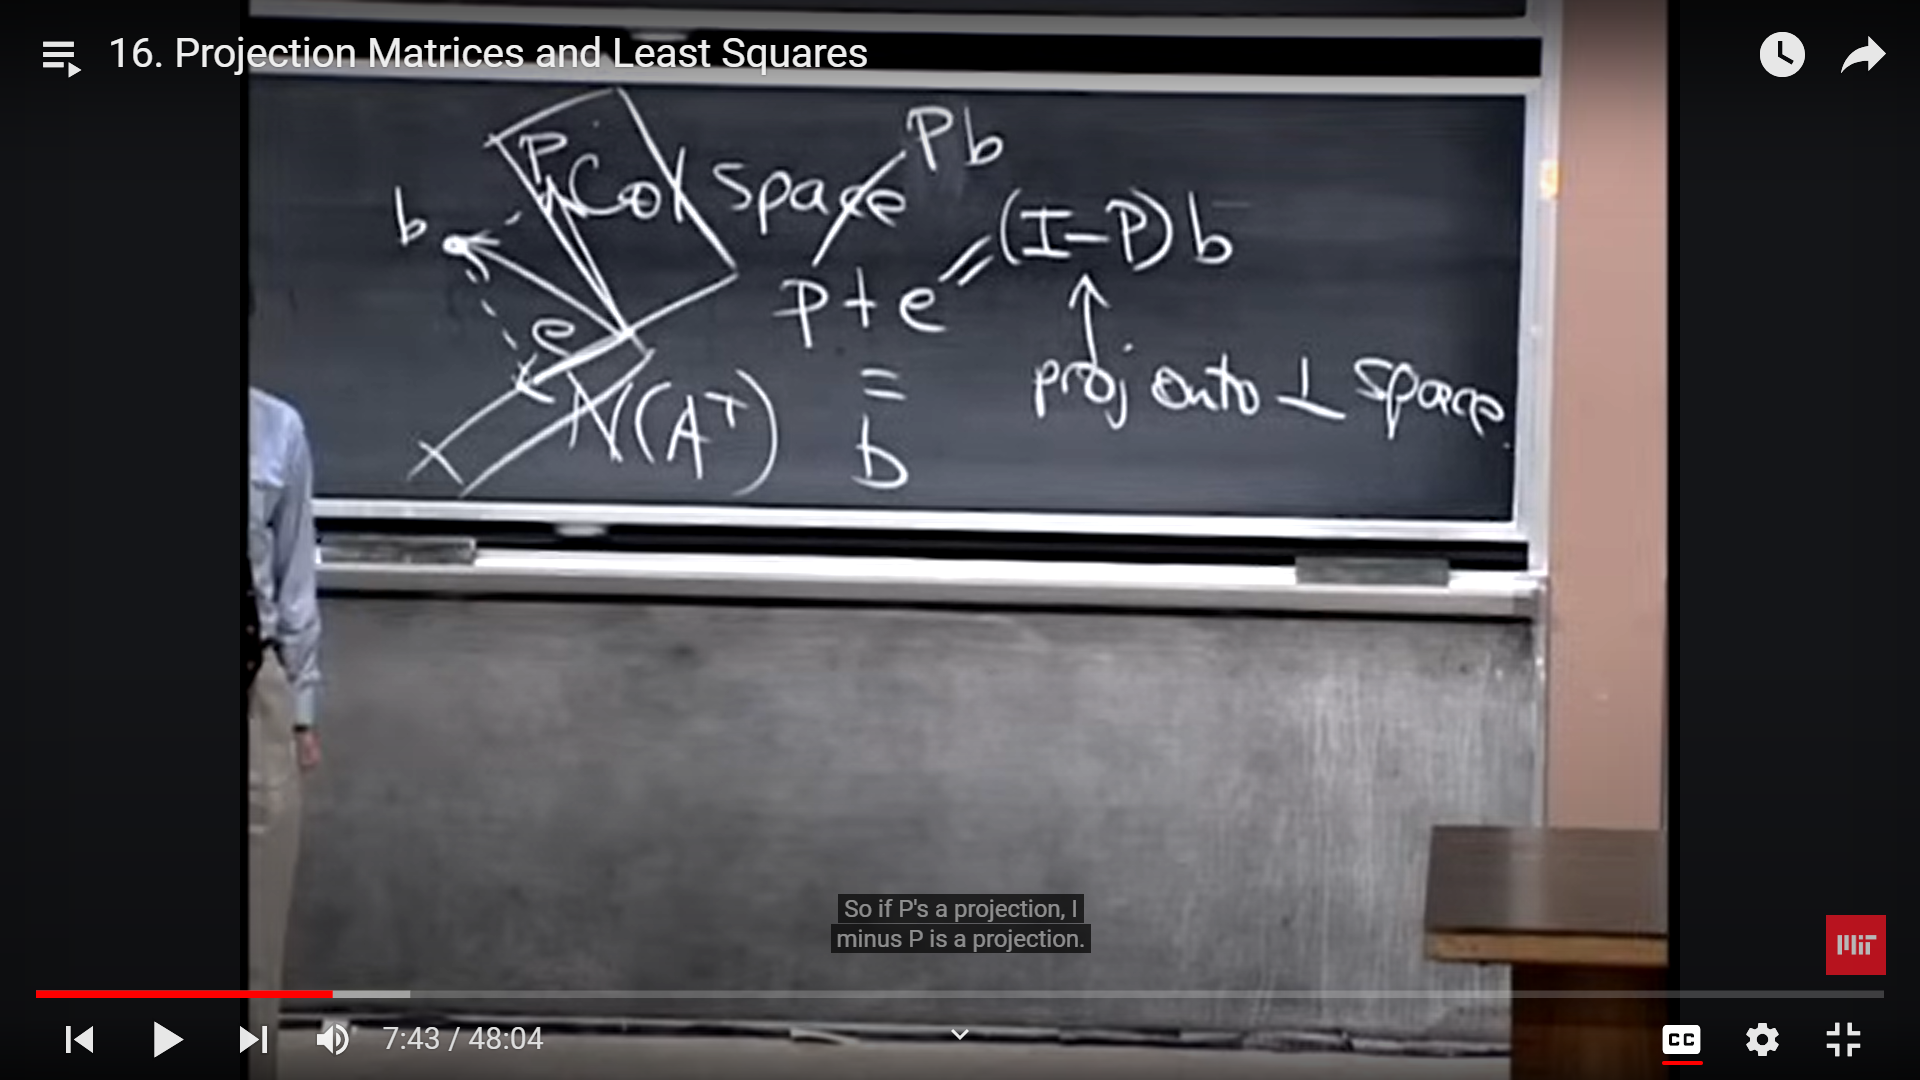 16. Projection Matrices and Least Squares
P
Col space
Pb
b
(I-P)b
p+e =
e
proj onto ⊥ space.
N(Aᵀ)
=
b
So if P's a projection, I
minus P is a projection.
MIT
7:43 / 48:04
CC